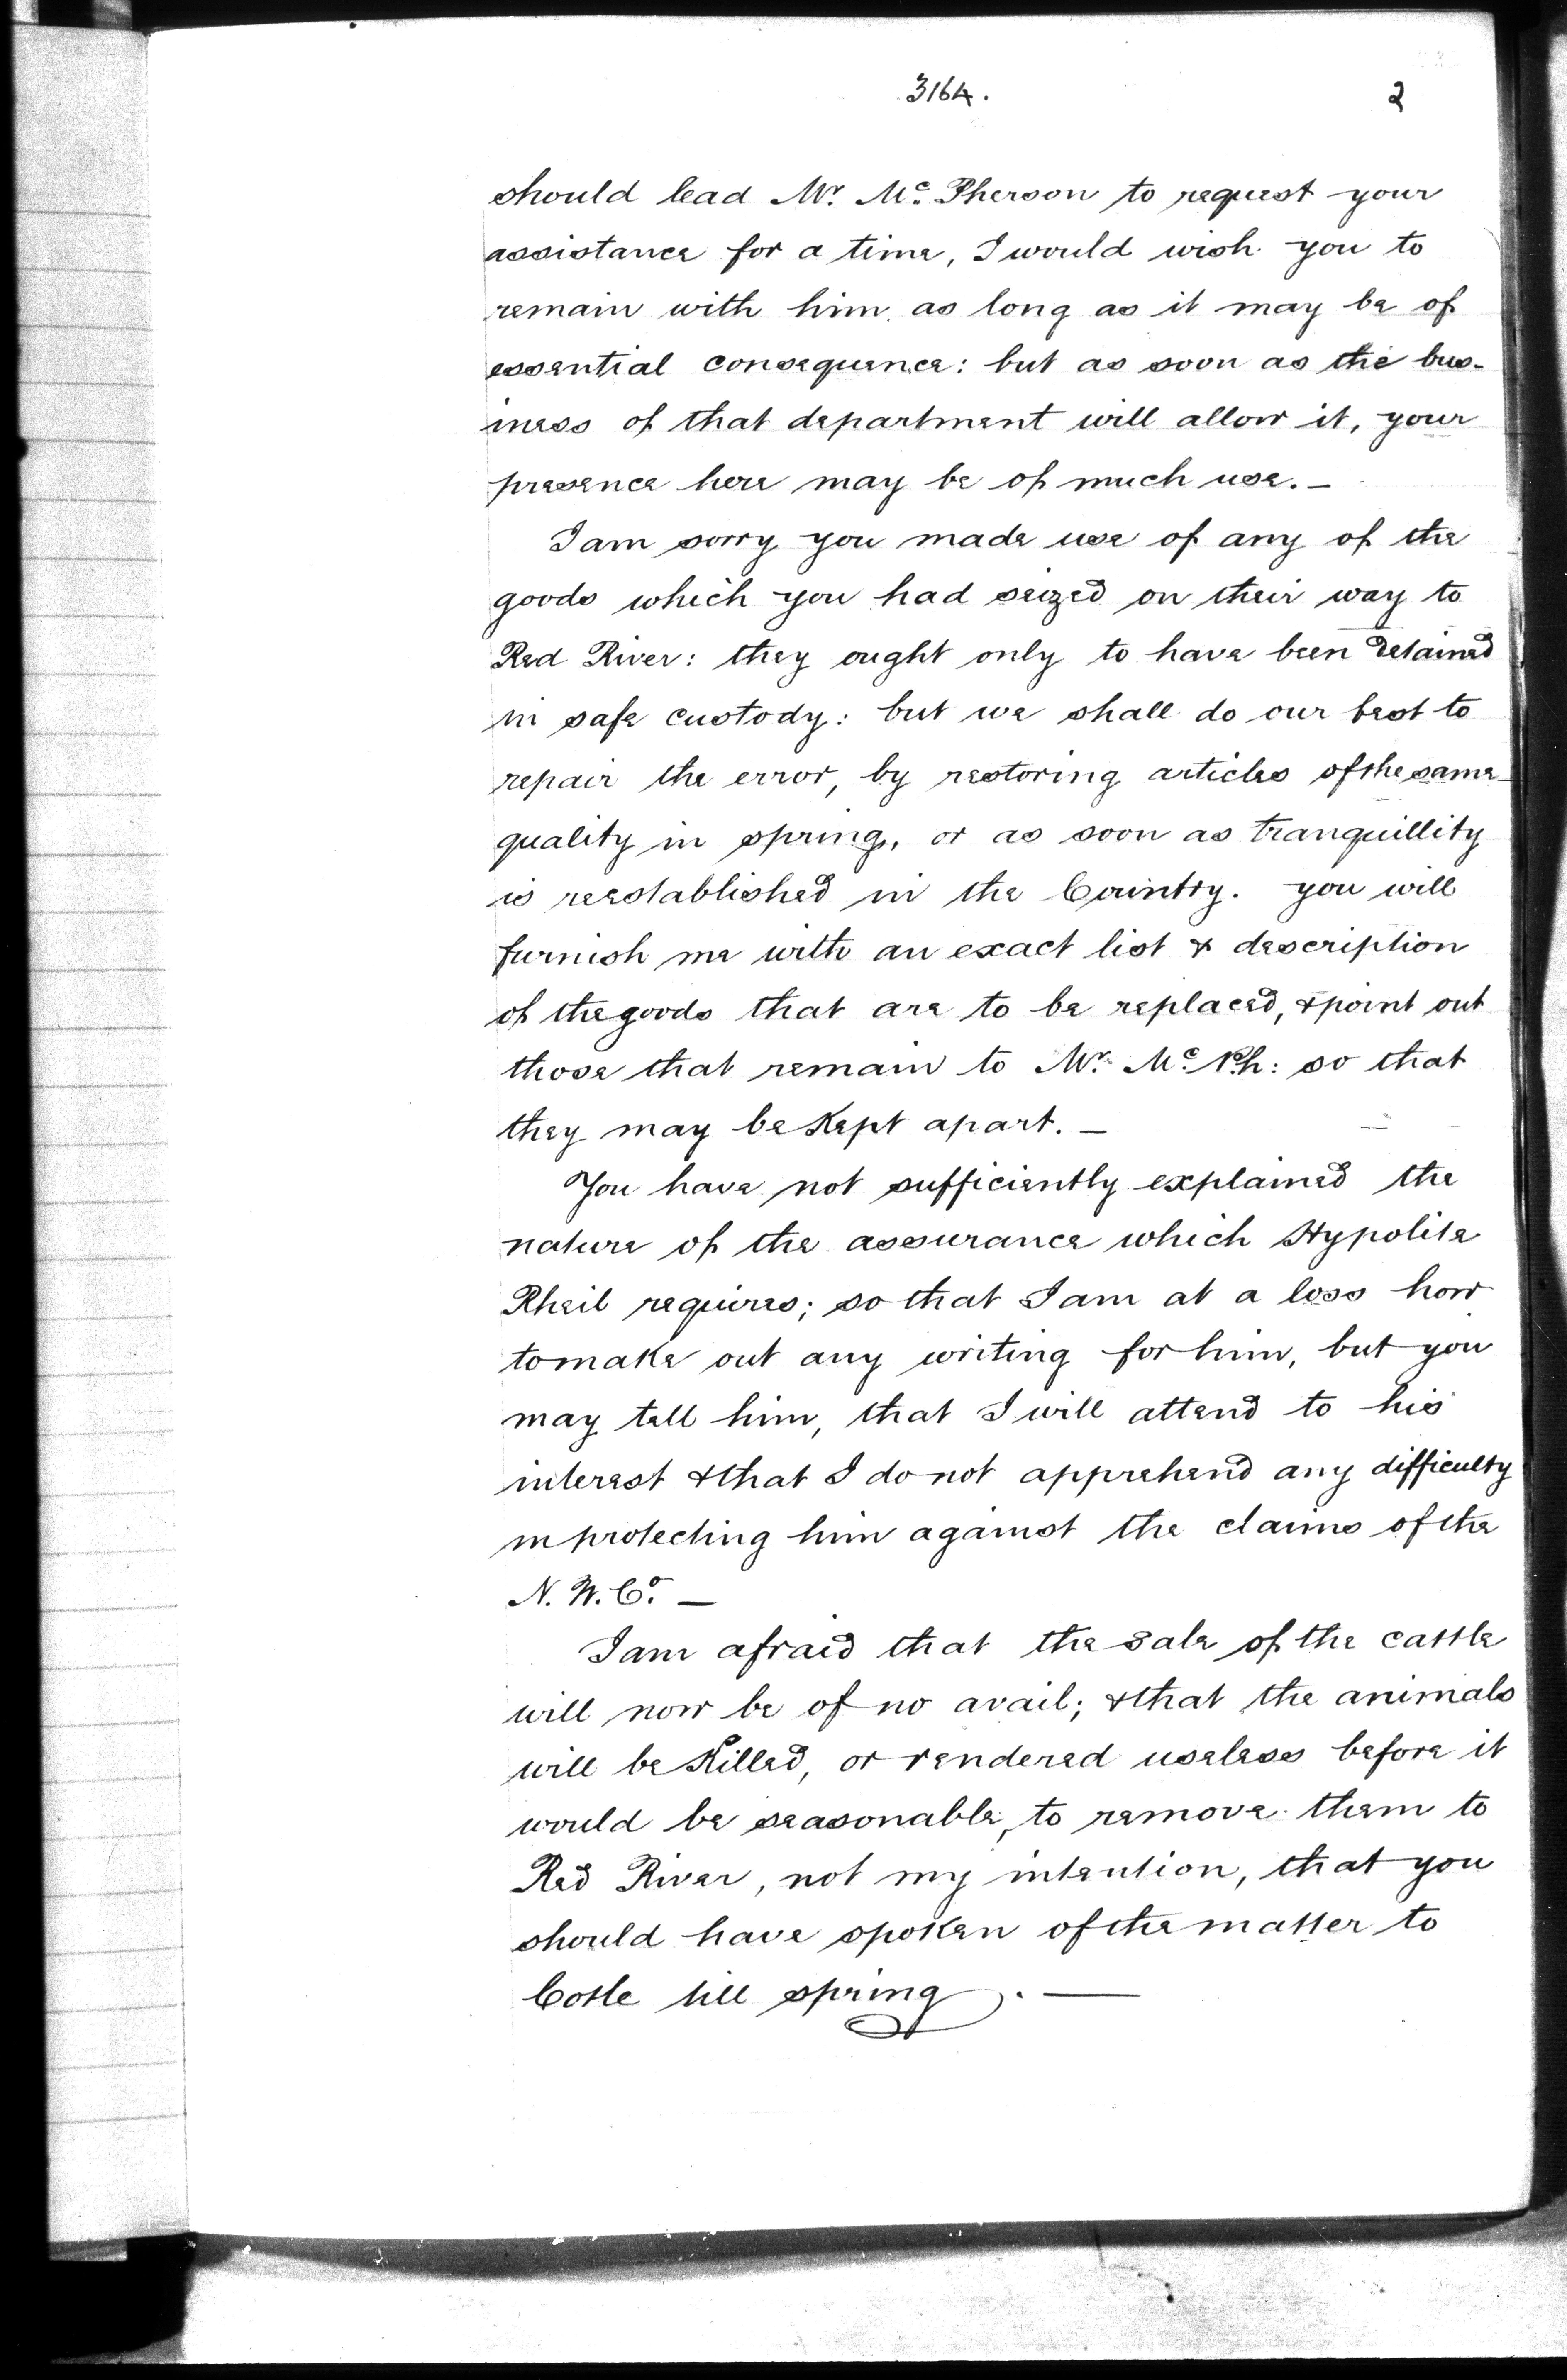 3164. 2
should lead Mr. Mc. Pherson to request your
assistance for a time, I would wish you to
remain with him as long as it may be of
essential consequence: but as soon as the bus-
iness of that department will allow it, your
presence here may be of much use. —
I am sorry you made use of any of the
goods which you had seized on their way to
Red River: they ought only to have been detained
in safe custody: but we shall do our best to
repair the error, by restoring articles of the same
quality in spring, or as soon as tranquillity
is reestablished in the Country. you will
furnish me with an exact list & description
of the goods that are to be replaced, & point out
those that remain to Mr. Mc. Ph: so that
they may be kept apart. —
You have not sufficiently explained the
nature of the assurance which Hypolite
Rheil requires; so that I am at a loss how
to make out any writing for him, but you
may tell him, that I will attend to his
interest & that I do not apprehend any difficulty
in protecting him against the claims of the
N. W. Co. —
I am afraid that the sale of the cattle
will now be of no avail; & that the animals
will be killed, or rendered useless before it
would be seasonable, to remove them to
Red River, not my intention, that you
should have spoken of the matter to
till spring. —